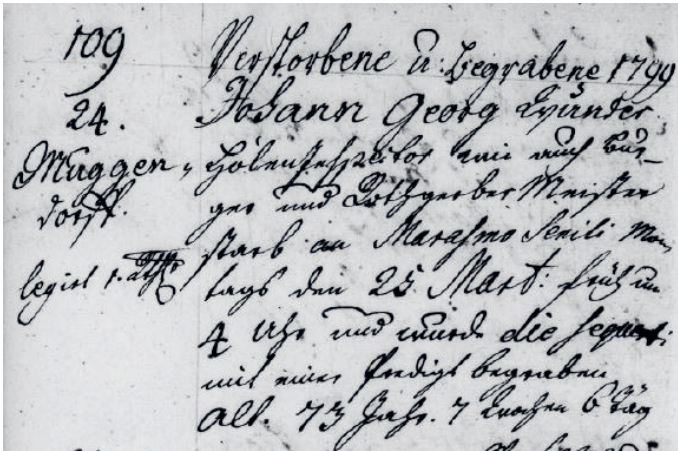 109
Verstorbene u: begrabene 1799
24.
Johann Georg Wunder
Muggen-
dorff.
Hölen Inspector wie auch Bur-
ger und Rothgerber Meister
starb an Marasmo Senili Mon-
legirt 1.
tags den 25 Mart: früh um
4 Uhr und wurde die sequent:
mit einer Predigt begraben
alt. 73 Jahr. 7 Wochen 6 Täg